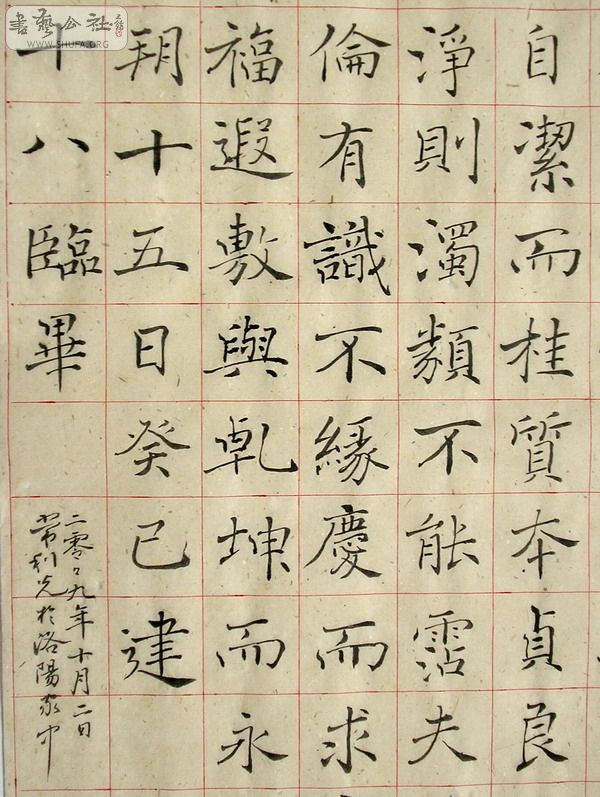 書藝公社
WWW.SHUFA.ORG
自潔而桂質本貞良
淨則濁類不能霑夫
倫有識不緣慶而求
福遐敷與乾坤而永
朔十五日癸巳建
十八臨畢
二零々九年十月二日
常利光於洛陽家中